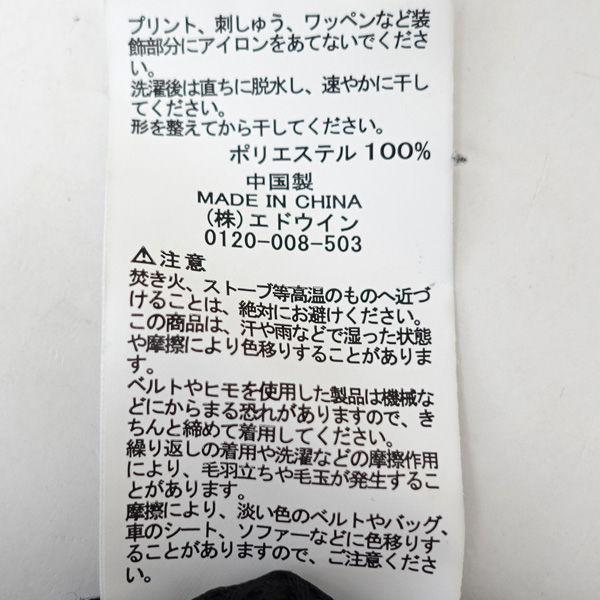 プリント、刺しゅう、ワッペンなど装
飾部分にアイロンをあてないでくださ
い。
洗濯後は直ちに脱水し、速やかに干し
てください。
形を整えてから干してください。
ポリエステル 100%
中国製
MADE IN CHINA
(株)エドウイン
0120-008-503
⚠注意
焚き火、ストーブ等高温のものへ近づ
けることは、絶対にお避けください。
この商品は、汗や雨などで湿った状態
や摩擦により色移りすることがありま
す。
ベルトやヒモを使用した製品は機械な
どにからまる恐れがありますので、き
ちんと締めて着用してください。
繰り返しの着用や洗濯などの摩擦作用
により、毛羽立ちや毛玉が発生するこ
とがあります。
摩擦により、淡い色のベルトやバッグ、
車のシート、ソファーなどに色移りす
ることがありますので、ご注意くださ
い。